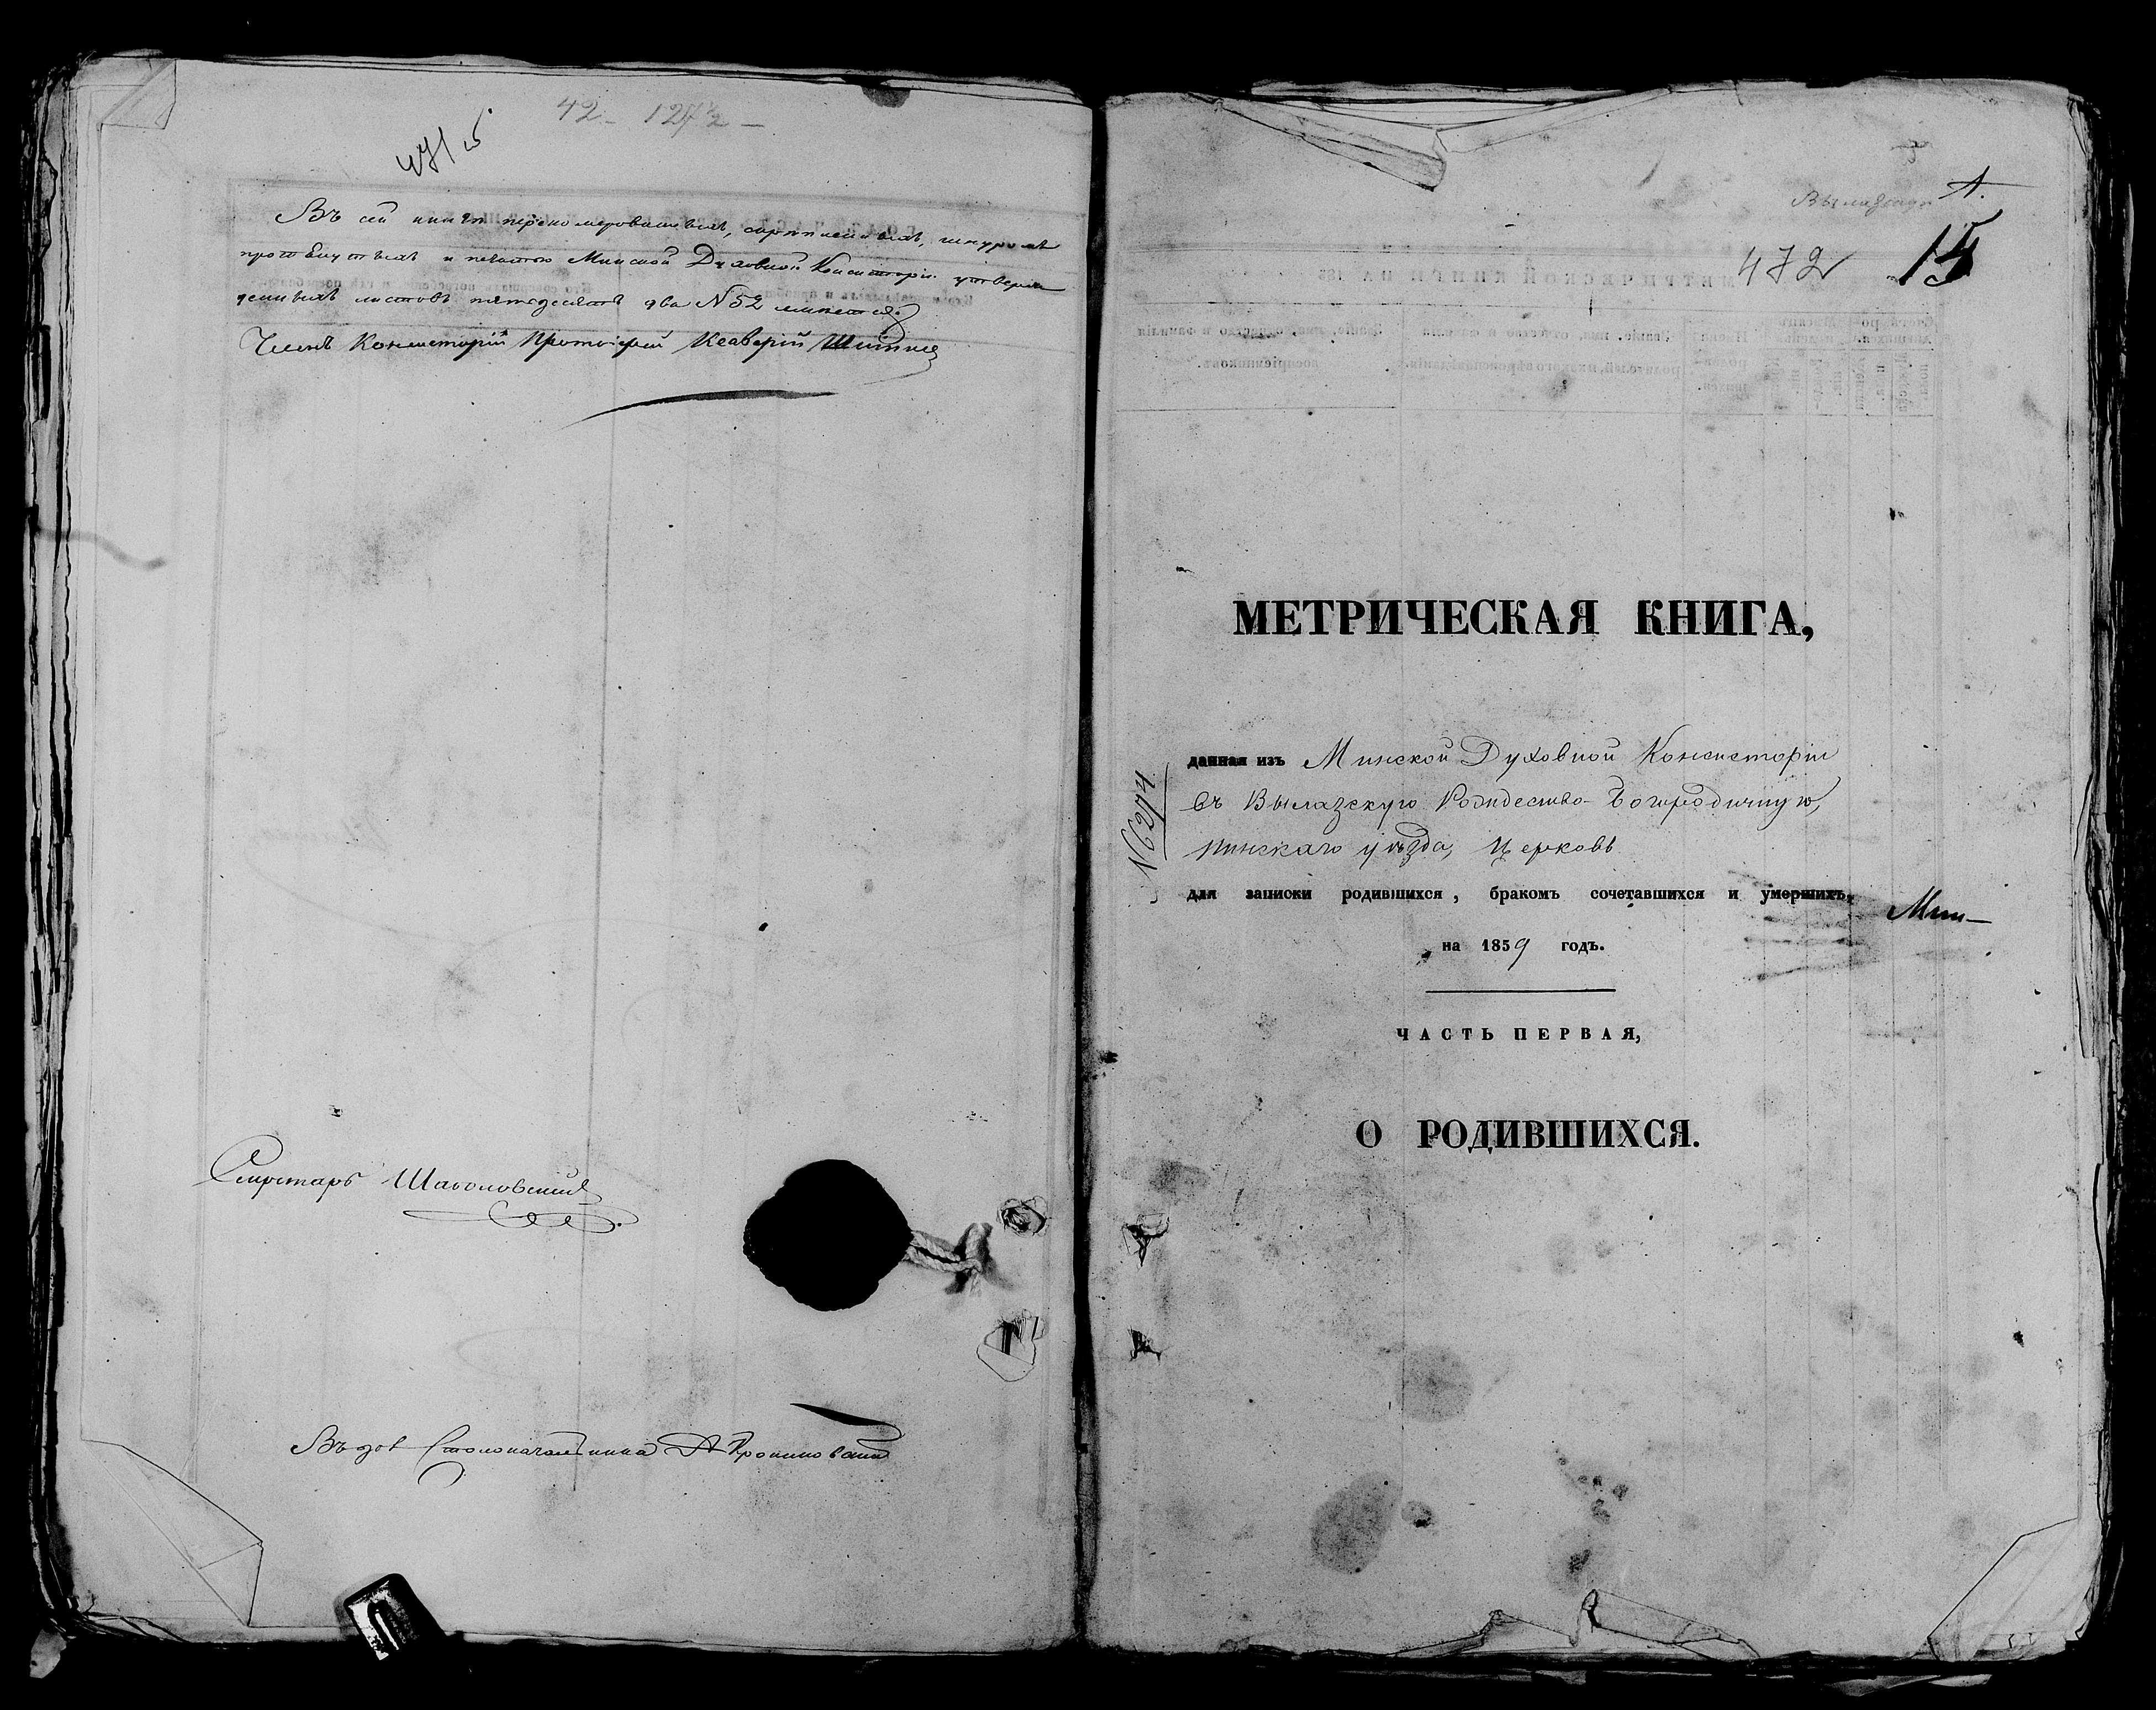 42 -
Въ сей книгѣ перенумерованныхъ, скрѣпленныхъ, шнуромъ
протянутыхъ и печатью Минской Духовной Консисторіи утверж
денныхъ листовъ пятьдесятъ два N 52 имѣется.
Членъ Консисторіи Протоіерей
Секретарь
Столоначальника
А.
472
15
МЕТРИЧЕСКАЯ КНИГА,
данная изъ Минской Духовной Консисторіи
въ Вылазскую Рождество-Богородичную,
Пинскаго уѣзда, Церковь
N 6274
для записки родившихся, бракомъ сочетавшихся и умершихъ,
Мин-
на 1859 годъ.
ЧАСТЬ ПЕРВАЯ,
О РОДИВШИХСЯ.